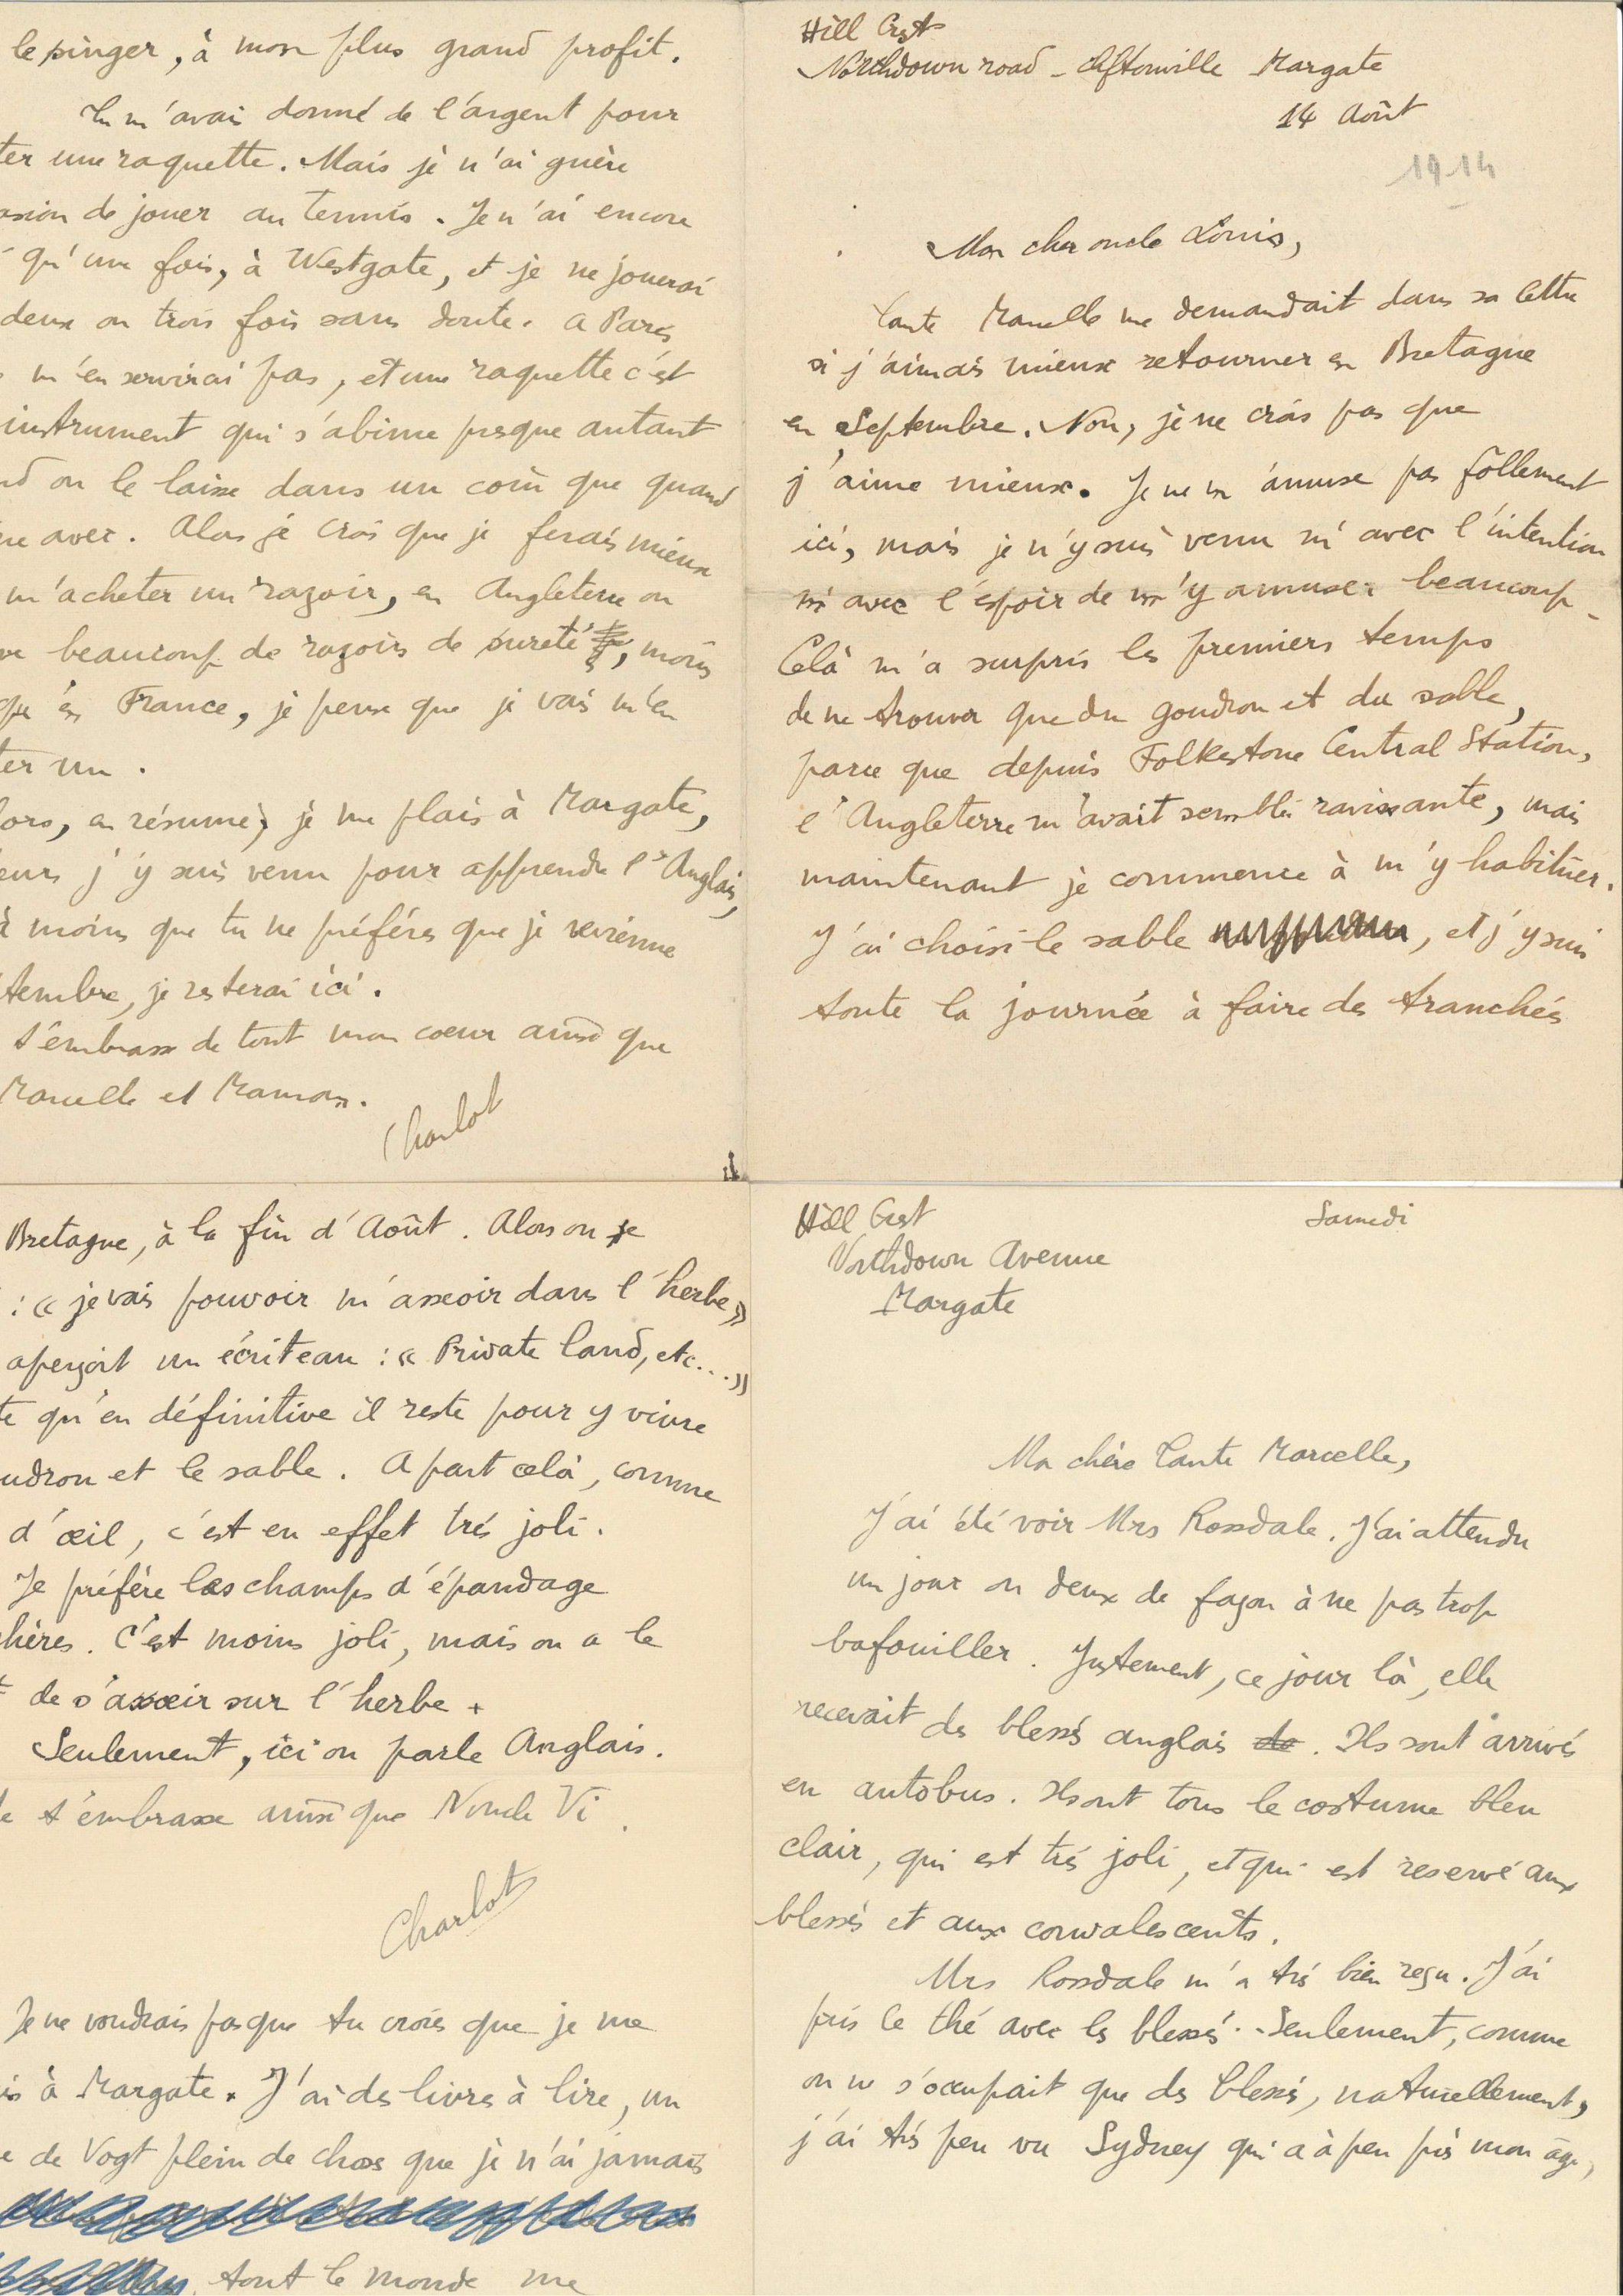 le singer, à mon plus grand profit.
Tu m'avais donné de l'argent pour
ter une raquette. Mais je n'ai guère
asion de jouer au tennis. Je n'ai encore
qu'une fois, à Westgate, et je ne jouerai
deux ou trois fois sans doute. A Paris
m'en servirai pas, et une raquette c'est
instrument qui s'abime presque autant
nd on le laisse dans un coin que quand
avec. Alors je crois que je ferais mieux
m'acheter un razoir, en Angleterre on
ve beaucoup de razoirs de sureté, moins
qu'en France, je pense que je vais m'en
ter un.
lors, en résumé, je me plais à Margate,
eurs j'y suis venu pour apprendre l'Anglais,
à moins que tu ne préféres que je revienne
tembre, je resterai ici.
t'embrasse de tout mon coeur ainsi que
Marcelle et Maman.
Charlot
Hill Crest
Northdown road - Cliftonville Margate
14 Août
1914
Mon cher oncle Louis,
Tante Marcelle me demandait dans sa lettre
si j'aimais mieux retourner en Bretagne
en Septembre. Non, je ne crois pas que
j'aime mieux. Je ne m'amuse pas follement
ici, mais je n'y suis venu ni avec l'intention
ni avec l'espoir de m'y amuser beaucoup.
Celà m'a surpris les premiers temps
de ne trouver que du goudron et du sable,
parce que depuis Folkestone Central Station,
l'Angleterre m'avait semblé ravissante, mais
maintenant je commence à m'y habituer.
J'ai choisi le sable, et j'y suis
toute la journée à faire des tranchés
Bretagne, à la fin d'Août. Alors on se
: « je vais pouvoir m'asseoir dans l'herbe »
aperçoit un écriteau : « Private land, etc... »
te qu'en définitive il reste pour y vivre
udron et le sable. A part celà, comme
d'œil, c'est en effet trés joli.
Je préfère les champs d'épandage
hères. C'est moins joli, mais on a le
de s'asseoir sur l'herbe.
Seulement, ici on parle Anglais.
t'embrasse ainsi que Noncle Vi.
Charlot
Je ne voudrais pas que tu croies que je me
is à Margate. J'ai des livres à lire, un
de Vogt plein de choses que je n'ai jamais
tout le monde me
Hill Crest
Samedi
Northdown Avenue
Margate
Ma chère Tante Marcelle,
J'ai été voir Mrs Rossdale. J'ai attendu
un jour ou deux de façon à ne pas trop
bafouiller. Justement, ce jour là, elle
recevait des blessés anglais. Ils sont arrivés
en autobus. Ils ont tous le costume bleu
clair, qui est trés joli, et qui est reservé aux
blessés et aux convalescents.
Mrs Rossdale m'a trés bien reçu. J'ai
pris le thé avec les blessés. Seulement, comme
on ne s'occupait que des blessés, naturellement,
j'ai trés peu vu Sydney qui a à peu prés mon âge,